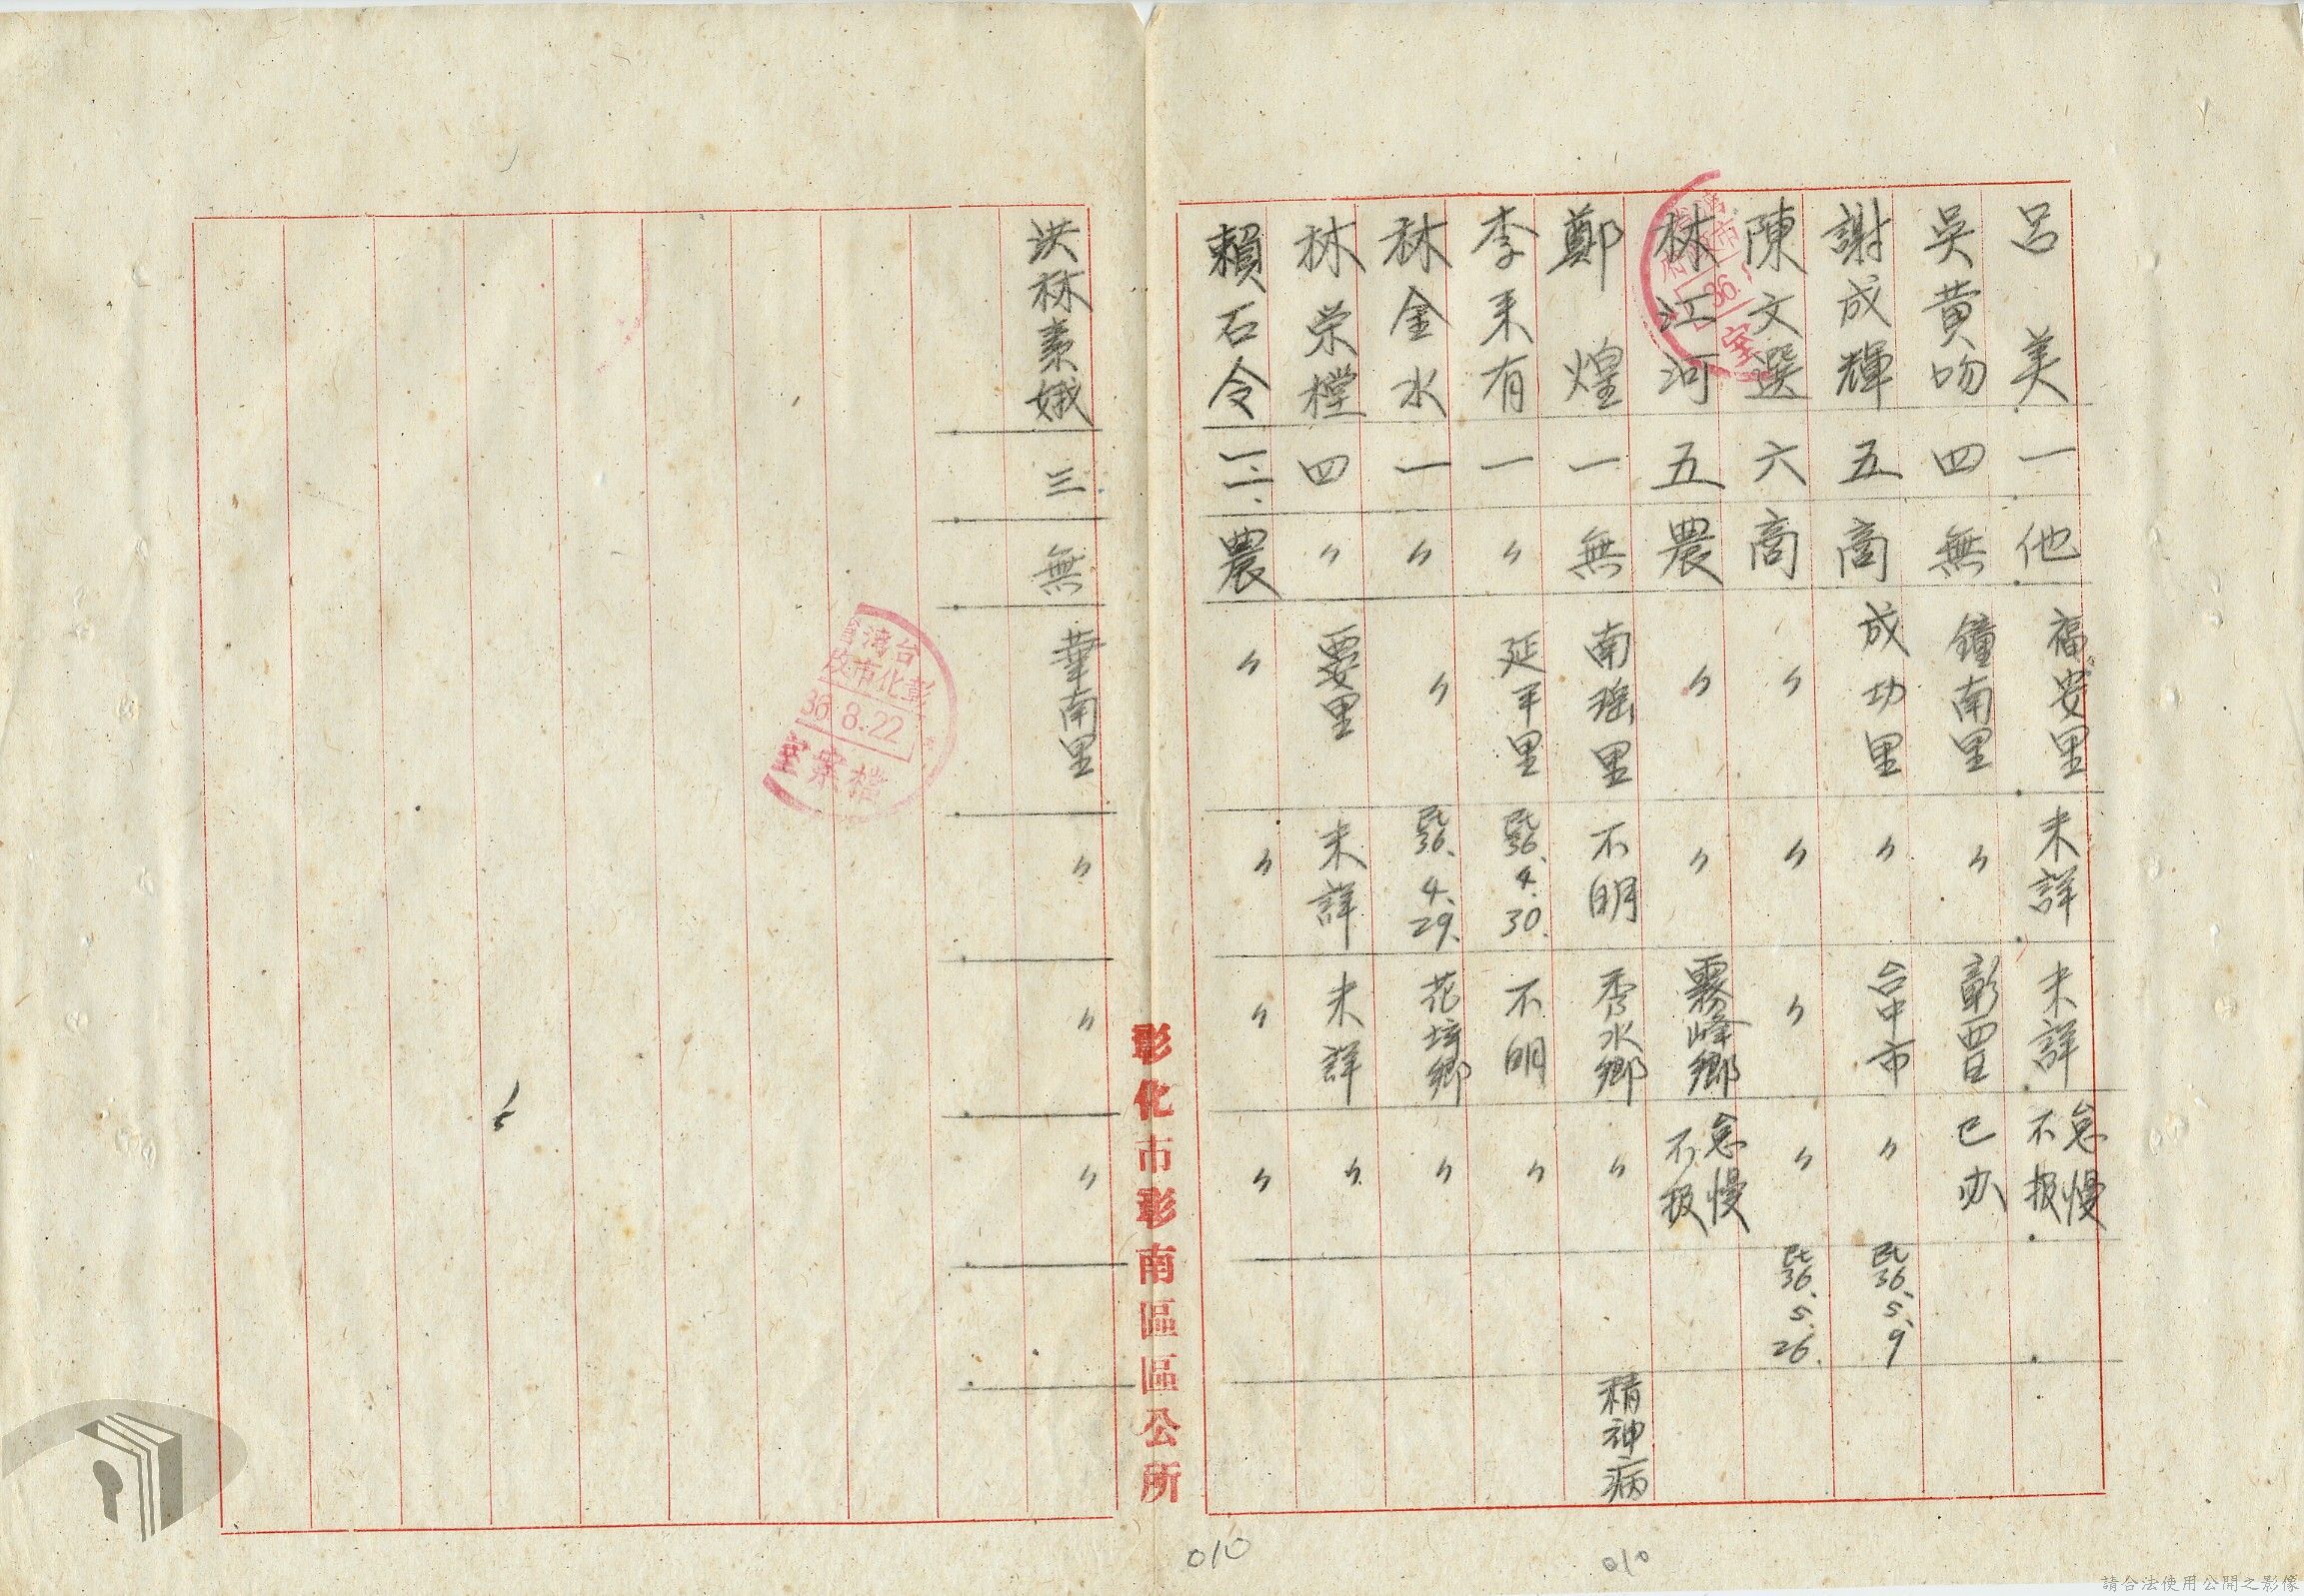 呂美 一 他 福安里 未詳 未詳 怠慢不报
吳黄吻 四 無 鐘南里 〃 彰西 已办
謝成輝 五 商 成功里 〃 台中市 〃 民36.5.9
陳文選 六 商 〃 〃 〃 〃 民36.5.26.
林江河 五 農 〃 〃 霧峰鄉 怠慢不报
鄭煌 一 無 南瑶里 不明 秀水鄉 〃 精神病
李来有 一 〃 延平里 民36.4.30. 不明 〃
林金水 一 〃 〃 民36.4.29. 花坛鄉 〃
林荣樘 四 〃 要里 未詳 未詳 〃
賴石令 二 農 〃 〃 〃 〃
彰化市彰南區區公所
洪林素娥 三 無 華南里 〃 〃 〃
台灣省
彰化市政
36.8.22
檔案室
36.
室
010
010
請合法使用公開之影像